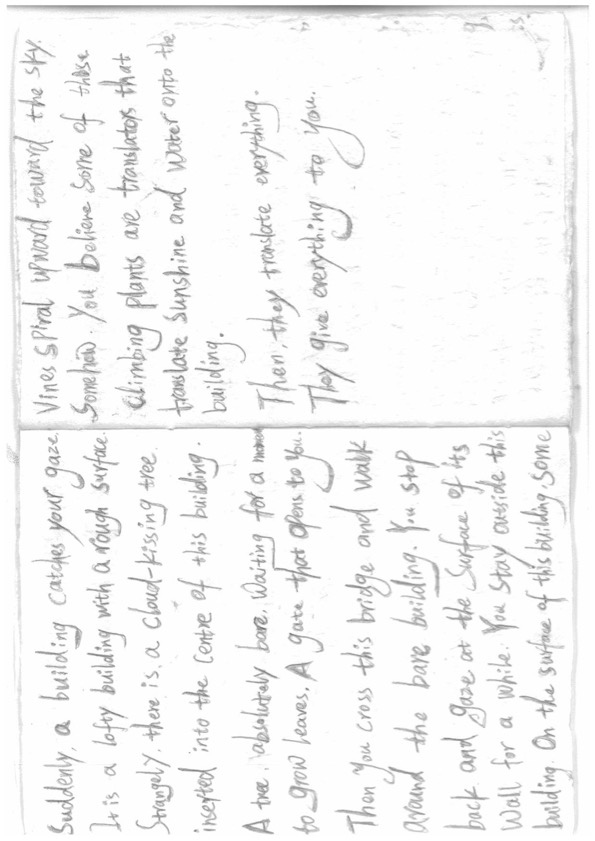 Suddenly, a building catches your gaze.
It is a lofty building with a rough surface.
Strangely, there is a cloud-kissing tree
inserted into the centre of this building.
A tree, absolutely bare. Waiting for a moment
to grow leaves. A gate that opens to you.
Then you cross this bridge and walk
around the bare building. You stop
back and gaze at the surface of its
wall for a while. You stay outside this
building. On the surface of this building some
Vines spiral upward toward the sky.
Somehow. You believe some of these
climbing plants are translators that
translate sunshine and water onto the
building.
Then, they translate everything.
They give everything to you.